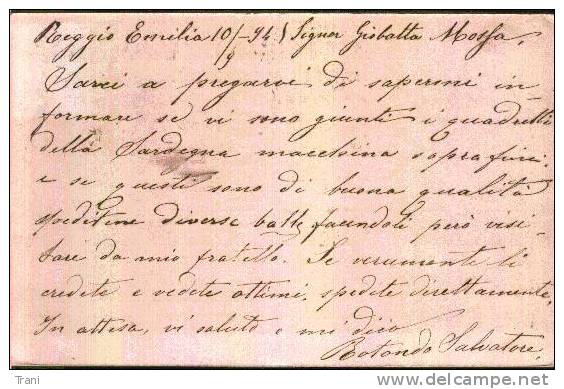 Reggio Emilia 10/9-94 Signor Giobatta Mossa,
Sarei a pregarvi di sapermi in-
formare se vi sono giunti i quadrelli
della Sardegna macchina soprafini
e se questi sono di buona qualità
speditene diverse balle facendoli però visi-
tare da mio fratello. Se veramente li
credete e vedete ottimi, spedite direttamente,
In attesa, vi saluto e mi dico
Rotondo Salvatore,
Trani
www.delcampe.net